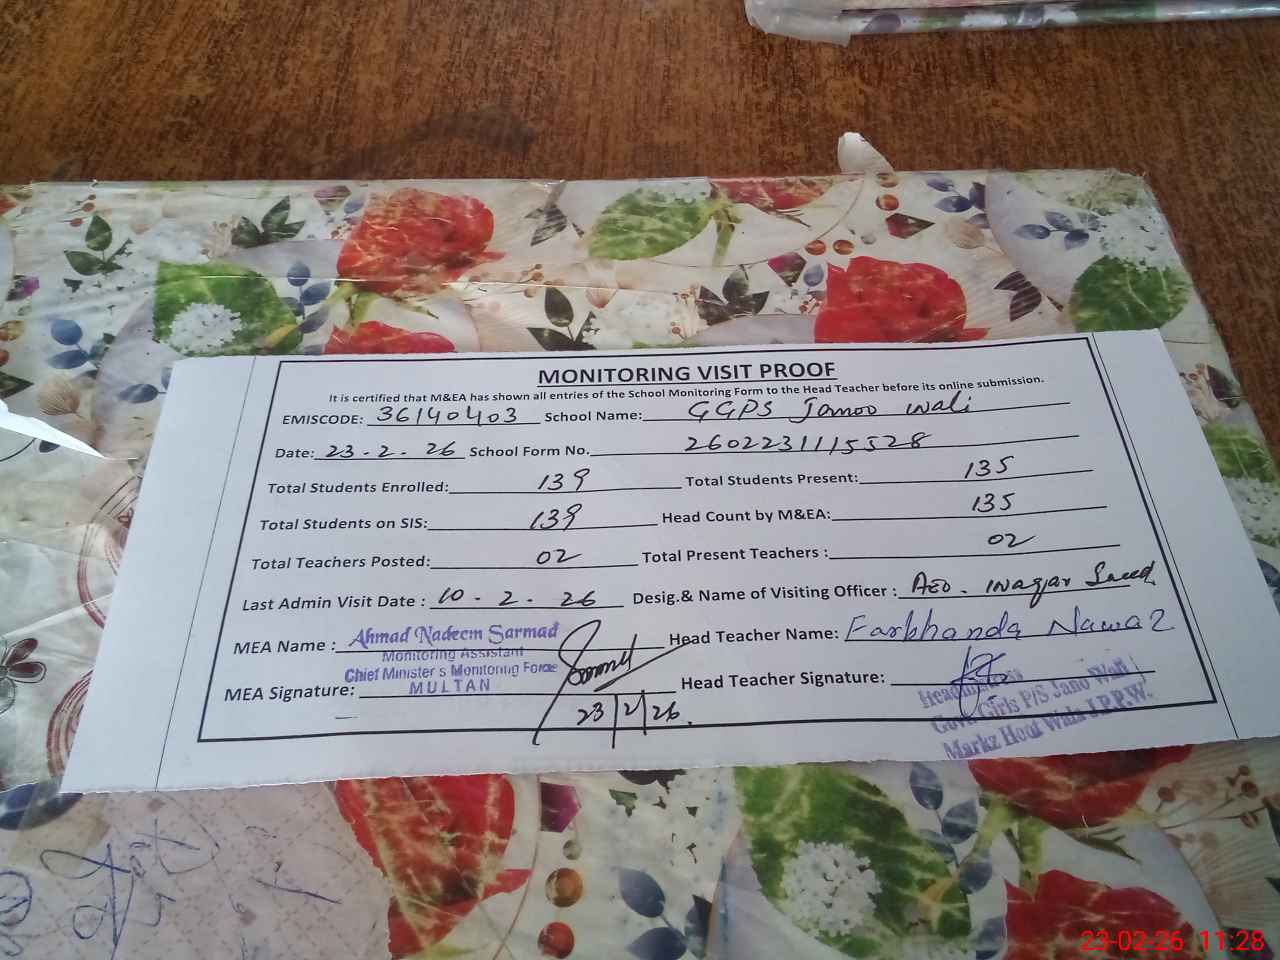 MONITORING VISIT PROOF
It is certified that M&EA has shown all entries of the School Monitoring Form to the Head Teacher before its online submission.
EMISCODE: 36140403 School Name: GGPS Janoo Wali
Date: 23-2-26 School Form No. 2602231115528
Total Students Enrolled: 139 Total Students Present: 135
Total Students on SIS: 139 Head Count by M&EA: 135
Total Teachers Posted: 02 Total Present Teachers : 02
Last Admin Visit Date : 10-2-26 Desig.& Name of Visiting Officer : AEO. Waqar Saeed
MEA Name : Ahmad Nadeem Sarmad Head Teacher Name: Farkhanda Nawaz
Monitoring Assistant
Chief Minister's Monitoring Force
MULTAN
MEA Signature: Head Teacher Signature:
23/2/26.
Headmistress
Govt. Girls P/S Jano Wali
Markz Hoot Wala J.P.P.W.
23-02-26 11:28